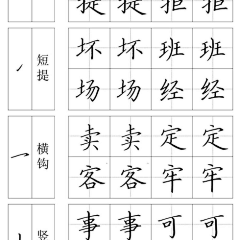 提 提 拒 拒
短提 坏 坏 班 班
场 场 经 经
横钩 卖 卖 定 定
客 客 牢 牢
竖 事 事 可 可